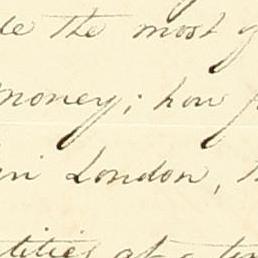 de the most of
money; how
in London,
tities at a